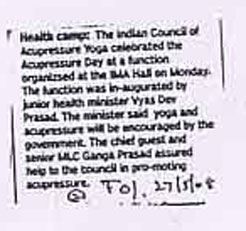 Health camp: The Indian Council of
Acupressure Yoga celebrated the
Acupressure Day at a function
organizsed at the IMA Hall on Monday.
The function was in-augurated by
junior health minister Vyas Dev
Prasad. The minister said yoga and
acupressure will be encouraged by the
government. The chief guest and
senior MLC Ganga Prasad assured
help to the council in pro-moting
acupressure.
TOI. 27/5/08